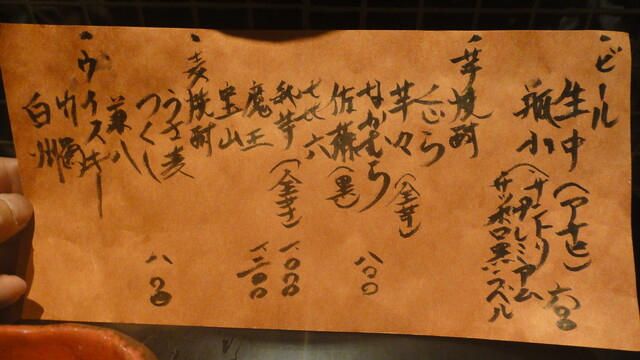 ・ビール
生中（アサヒ）六〇〇
瓶小（サントリー
プレミアム
サッポロ黒ラベル
・芋焼酎
くじら
芋々（全芋）
なかむら 八〇〇
佐藤（黒）
七七六
我芋（全芋） 一、〇〇〇
魔王 一、三〇〇
宝山
・麦焼酎
うさ麦
つくし 八〇〇
兼八
・ウイスキー
竹鶴
白州